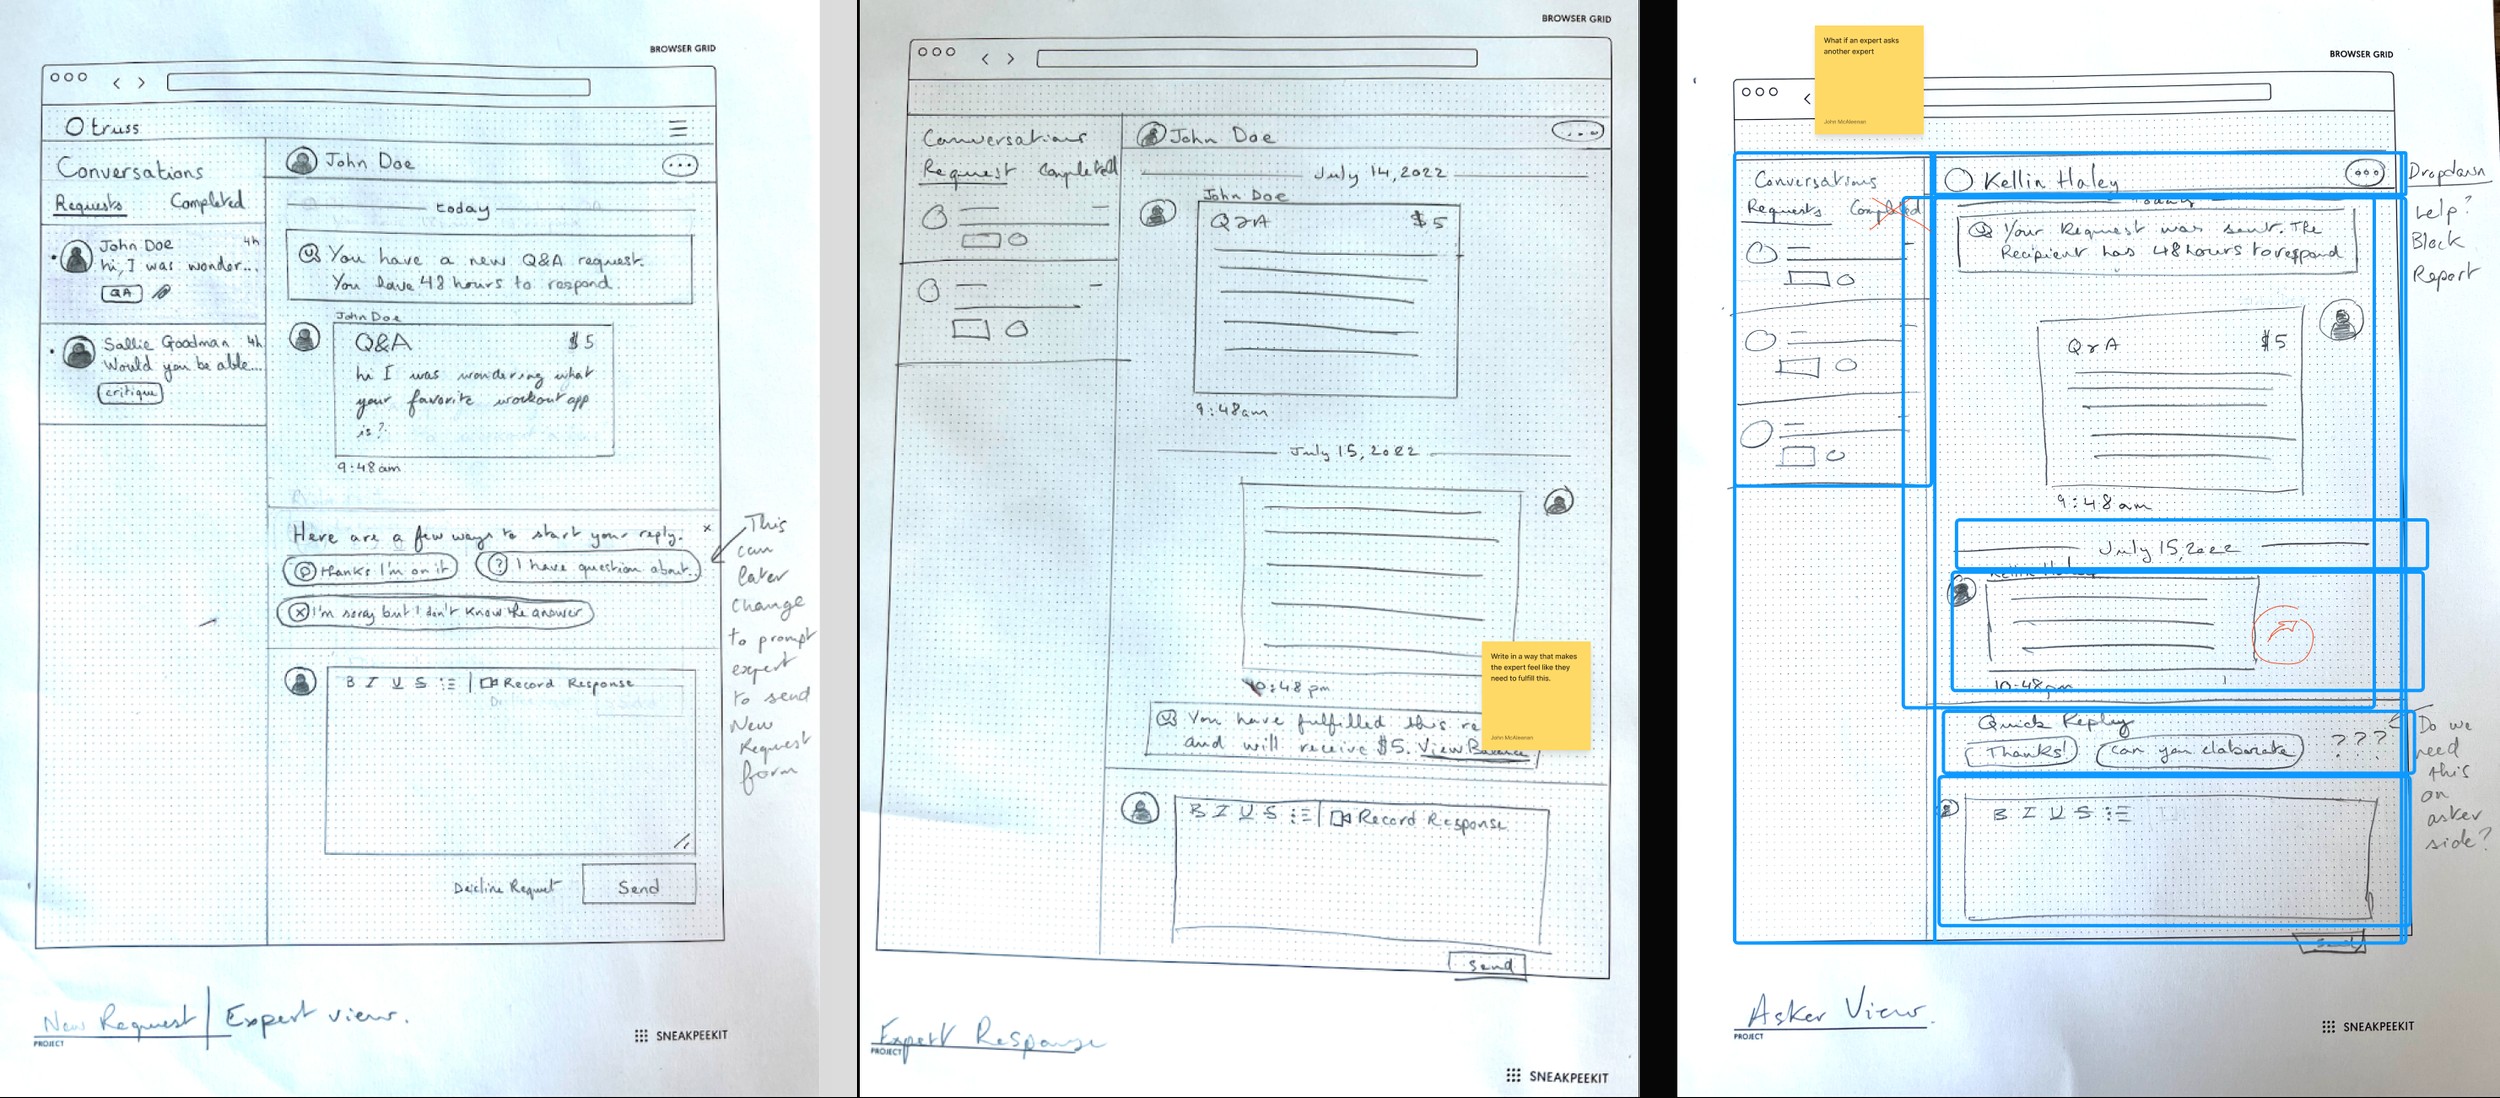 BROWSER GRID
truss
Conversations
Requests Completed
John Doe 4h
hi, I was wonder...
QA
Sallie Goodman 4h
Would you be able...
critique
John Doe
today
You have a new Q&A request.
You have 48 hours to respond.
John Doe
Q&A $5
hi I was wondering what
your favorite workout app
is?
9:48am
Here are a few ways to start your reply. x
thanks I'm on it
? I have question about..
I'm sorry but I don't know the answer
This
can
later
change
to prompt
expert
to send
New
Request
form
B I U S Record Response
Decline Request Send
New Request | Expert view.
PROJECT
SNEAKPEEKIT
BROWSER GRID
Conversations
Request Completed
John Doe
July 14, 2022
John Doe
Q&A $5
9:48am
July 15, 2022
10:48pm
Write in a way that makes
the expert feel like they
need to fulfill this.
John McAleenan
You have fulfilled this re
and will receive $5. View Balance
B I U S Record Response
Send
Expert Response
PROJECT
SNEAKPEEKIT
What if an expert asks
another expert
John McAleenan
BROWSER GRID
Conversations
Requests Completed
Kellin Haley
today
Your Request was sent. The
Recipient has 48 hours to respond
Dropdown
Help?
Block
Report
Q&A $5
9:48am
July 15, 2022
Kellin Haley
10:48pm
Quick Reply
Thanks! Can you elaborate ???
Do we
need
this
on
asker
side?
B I U S
Send
Asker View.
PROJECT
SNEAKPEEKIT